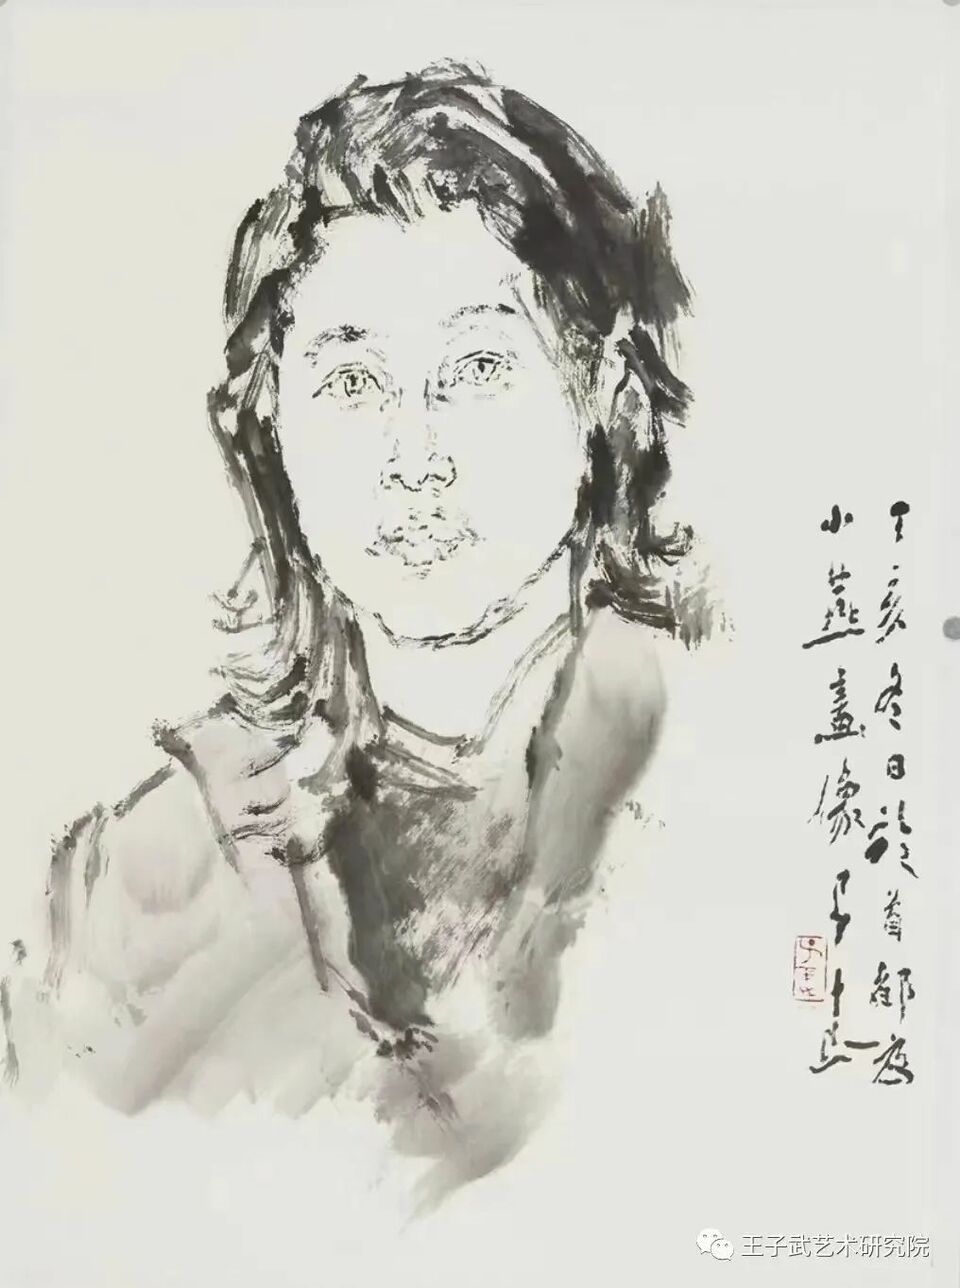 丁亥冬日於首都为
小燕畫像子武
王子武艺术研究院